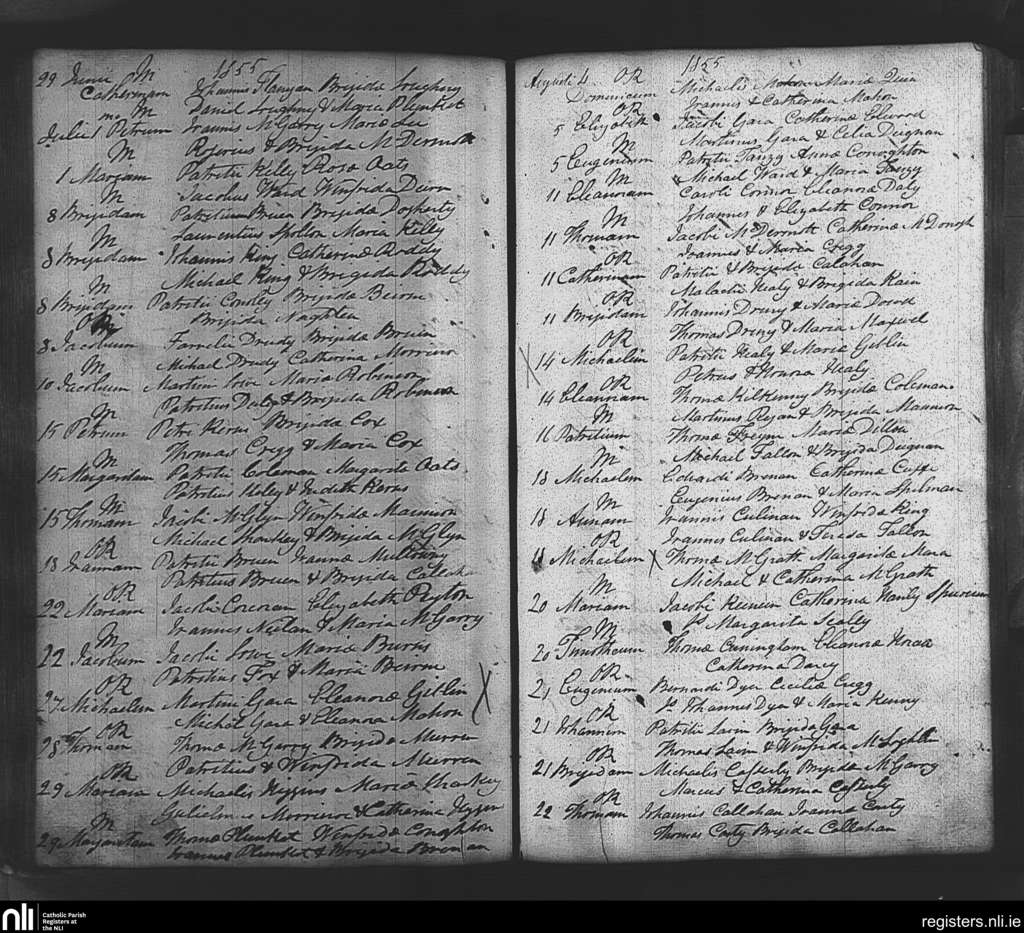 1855
29 Junii M Johannis Flanigan Brigida Loughny
Catherinam Daniel Loughny & Maria Plunket
M
Julii 1 Petrum Joannis McGarry Maria Lee
Rogerius & Brigida McDermott
M
1 Mariam Patritii Kelly Rosæ Oats
Jacobus Ward Winfrida Durn
M
8 Brigidam Patritium Bruen Brigidæ Dogherty
Laurentius Spollon Maria Kelly
M
8 Brigidam Johannis King Catherinæ Roddy
Michael King & Brigida Roddy
M
8 Brigidam Patritii Conoley Brigidæ Beirne
Brigida
OR
8 Jacobum Farrelii Drudy Brigida Bruen
Michael Drudy Catherina
M
10 Jacobum Martini Lowe Mariæ Robinson
Patritius Daly & Brigida Robinson
M
15 Petrum Petri Kerns Brigidæ Cox
Thomas Cregg & Maria Cox
M
15 Margaridam Patritii Coleman Margaritæ Oats
Patritius Healy & Judith Kerns
M
15 Thomam Jacobi McGlyn Winfridæ Mannion
Michael Sharkey & Brigida McGlyn
OR
18 Joannam Patritii Bruen Joannæ
Patritius Bruen & Brigida Callahan
OR
22 Mariam Jacobi Corcoran Elizabeth Peyton
Joannes Neilan & Maria McGarry
M
22 Jacobum Jacobi Lowe Mariæ Burns
Patritius Fox & Maria Beirne
OR
27 Michaelem Martini Gara Eleanoræ Giblin X
Michael Gara & Eleanora Mahon
OR
28 Thomam Thomæ McGarry Brigida Murren
Patritius & Winfrida Murren
OR
29 Mariam Michaelis Higgins Mariæ Sharkey
& Catharina Higgin
M
29 Margaritam Thomæ Plunket Winfridæ Conaghton
Joannes Plunket & Brigida
1855
Augusti 4 OR Michaelis Mahon Mariæ Quin
Dominicum Joannis & Catherina Mahon
OR
5 Elizabeth Jacobi Gara Catherinæ Elwood
Martinus Gara & Celia Duignan
M
5 Eugenium Patritii Tangy Annæ Conaghton
Michael Waid & Maria Tangy
M
11 Eleanoram Caroli Connor Eleanoræ Daly
Johannes & Elizabeth Connor
M
11 Thomam Jacobi McDermott Catherinæ McDonogh
Joannes & Maria Cregg
OR
11 Catherinam Patritii & Brigida Calahan
Malachi Healy & Brigida Kain
OR
11 Brigidam Johannis Drury & Maria Dowd
Thomas Drury & Maria Maxwel
OR
X 14 Michaelem Patritii Healy & Maria Giblin
Petrus & Honora Healy
OR
14 Eleanoram Thomæ Kilkenny Brigidæ Coleman
Martinus Regan & Brigida Mannion
M
16 Patritium Thomæ Freyne Mariæ Dillon
Michael Fallon & Brigida Duignan
M
18 Michaelem Edwardi Brenan Catherinæ Cuffe
Eugenius Brenan & Maria Spelman
M
18 Annam Joannis Culinan Winfridæ King
Joannes Culinan & Teresa Fallon
OR
Michaelem X Thomæ McGrath Margaritæ Mara
Michael & Catherina McGrath
M
20 Mariam Jacobi Keenen Catherina Hanly Spurium
Sp Margarita Scally
M
20 Timotheum Thomæ Cuningham Eleanoræ
Catherina Darcy
OR
21 Eugenium Bernardi Dyer Ceciliæ Cregg
Sp Johannes Dyer & Maria Kenny
OR
21 Johannem Patritii Lavin Brigida Gara
Thomas Lavin & Winfrida
OR
21 Brigidam Michaelis Casserly Brigidæ McGarry
Marcus & Catharina Casserly
OR
22 Thomam Johannis Callahan Joannæ Carty
Thomas Carty Brigida Callahan
nli Catholic Parish
Registers at
the NLI
registers.nli.ie